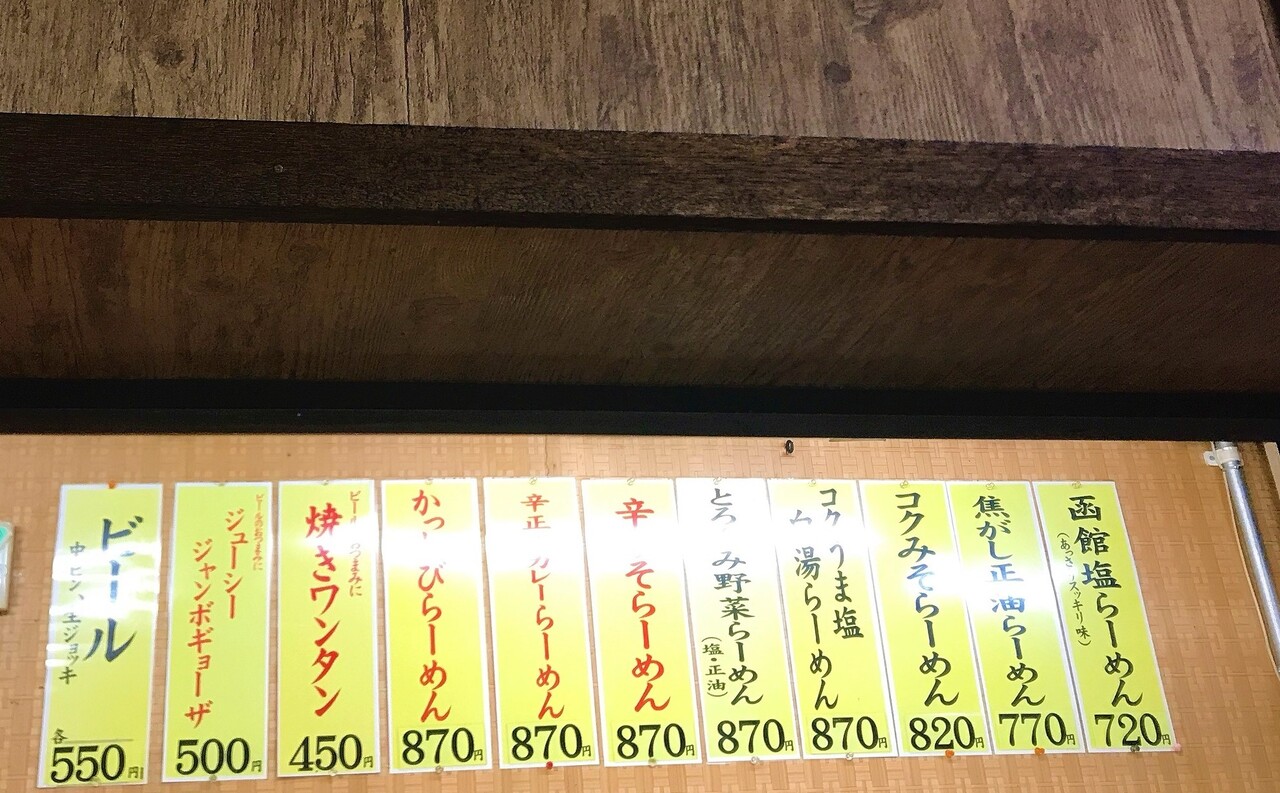 函館塩らーめん
(あっさりスッキリ味)
720円
焦がし正油らーめん
770円
コクみそらーめん
820円
コクうま塩
湯らーめん
870円
み野菜らーめん
(塩・正油)
870円
辛みそらーめん
870円
辛正 カレーらーめん
870円
びらーめん
870円
ビールのおつまみに
焼きワンタン
450円
ビールのおつまみに
ジューシー
ジャンボギョーザ
500円
ビール
中ビン、生ジョッキ
各550円